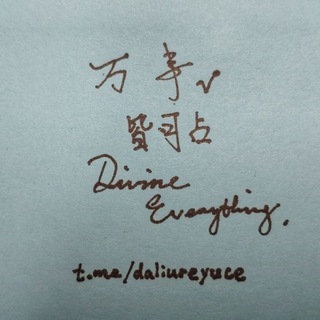 万事
皆可占
Divine
Everything.
t.me/daliureyuce